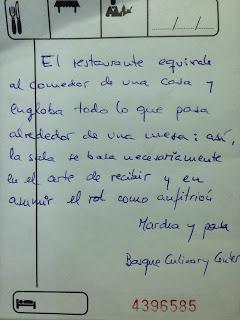 El restaurante equivale
al comedor de una casa y
engloba todo lo que pasa
alrededor de una mesa; así,
la sala se basa necesariamente
en el arte de recibir y en
asumir el rol como anfitrión
Mardua y pasa
Basque Culinary Center
4396585